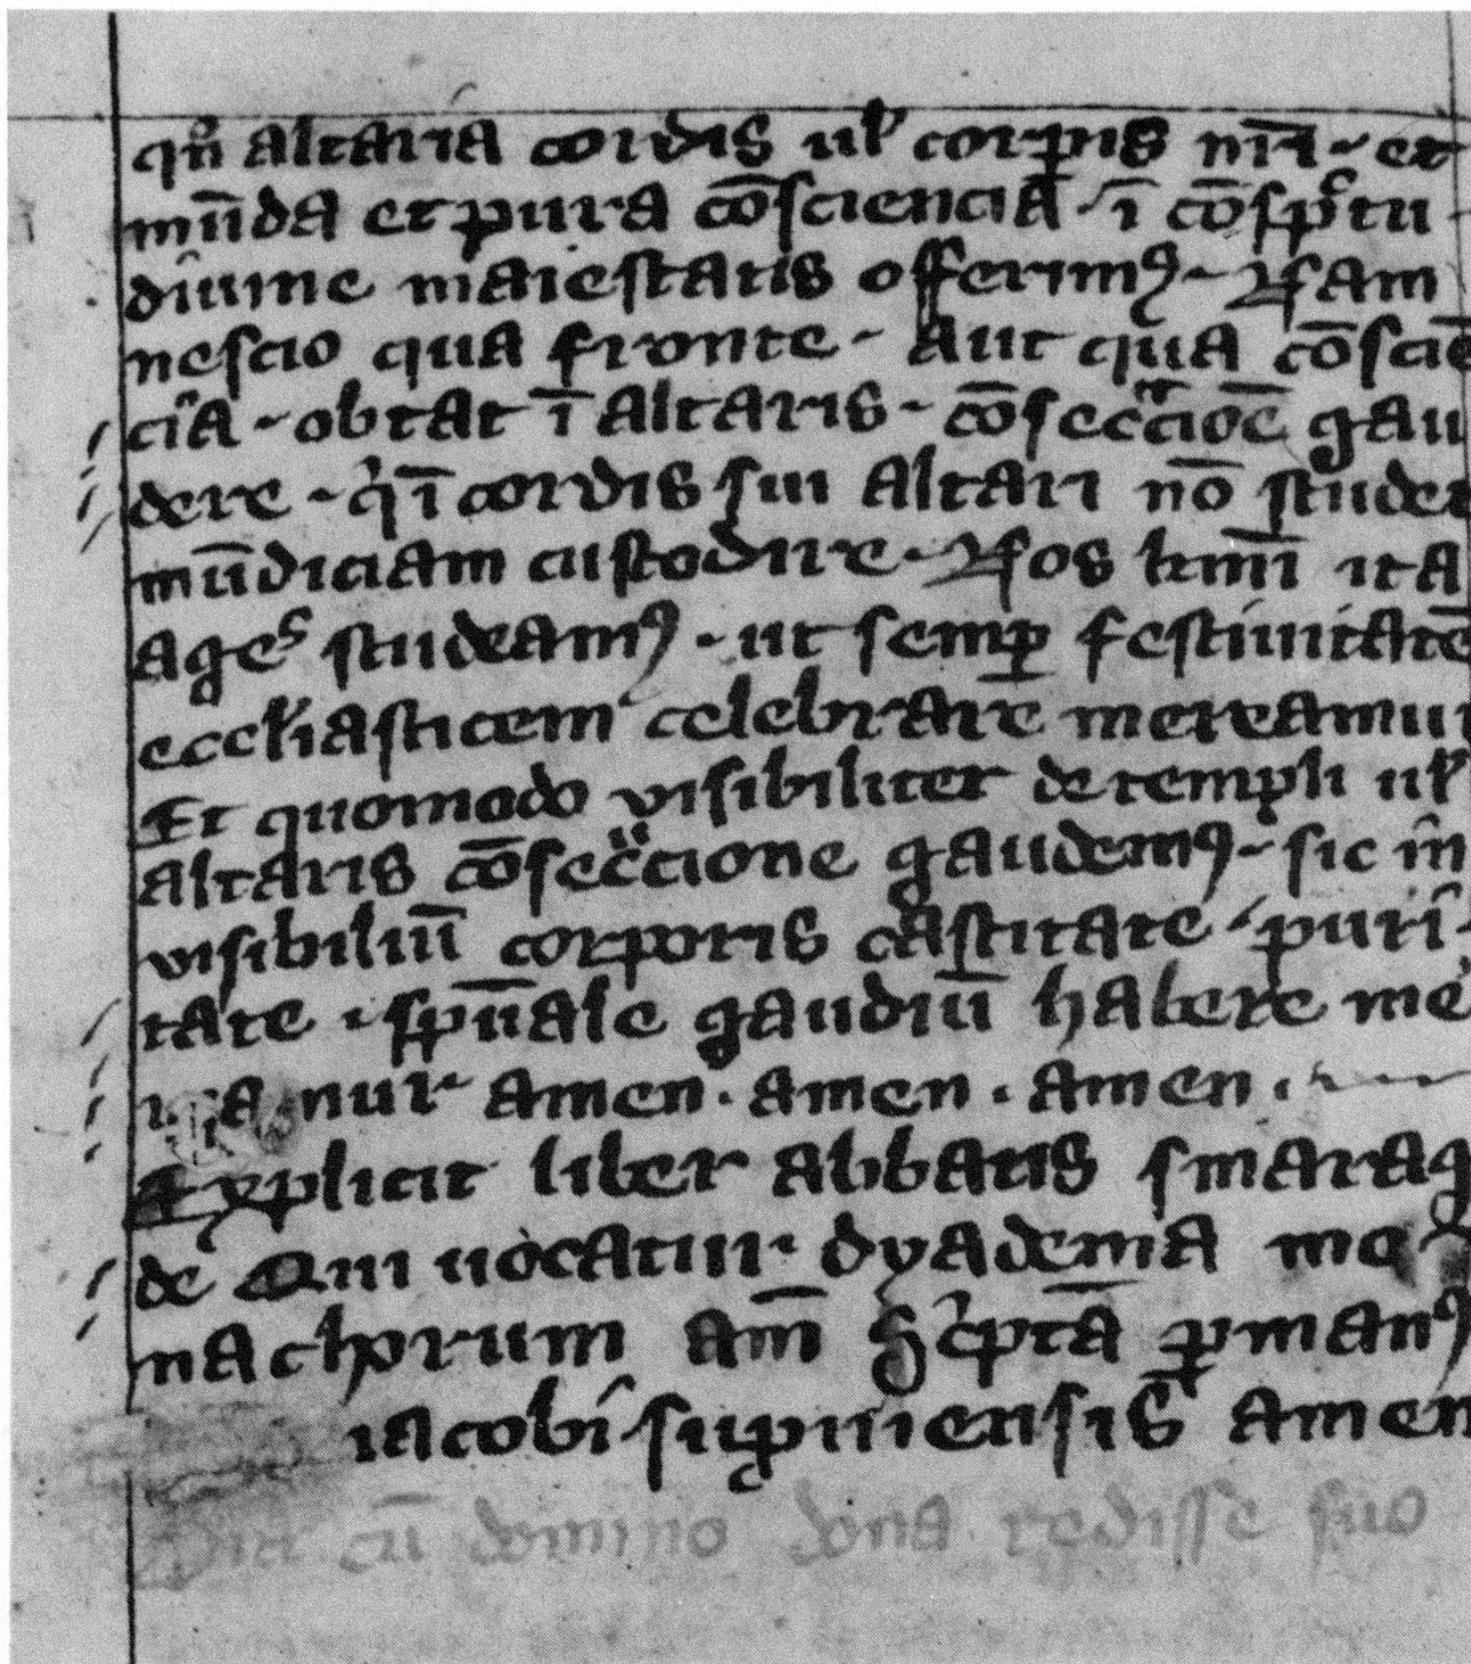 qn̄ altaria cordis ul̓ corꝑis nr̄i et
mūda et pura cōsciencia ī cōsp̊tu
diuine maiestatis offerimꝰ Nam
nescio qua fronte Aut qua cōsciē
cia obtat ī altaris cōsecracioē gau
dere qi ī cordis sui altari nō studet
mūdiciam custodire Nos kr̄mi ita
agēs studeamꝰ ut semꝑ festiuitatē
eccl̓iasticem celebrare mereamur
Et quomodo visibiliter de templi ul̓
altaris cōsecracione gaudemꝰ sic in
visibiliū corporis castitate puri
tate sp̄uale gaudiū habere me
amur amen · amen · amen ·
Explicit liber abbatis smarag
de Qui uocatur dyadema mo
nachorum am̄ scͥptā ꝑ manꝰ
iacobi suꝑiniensis amen
cū domino dona redisse suo